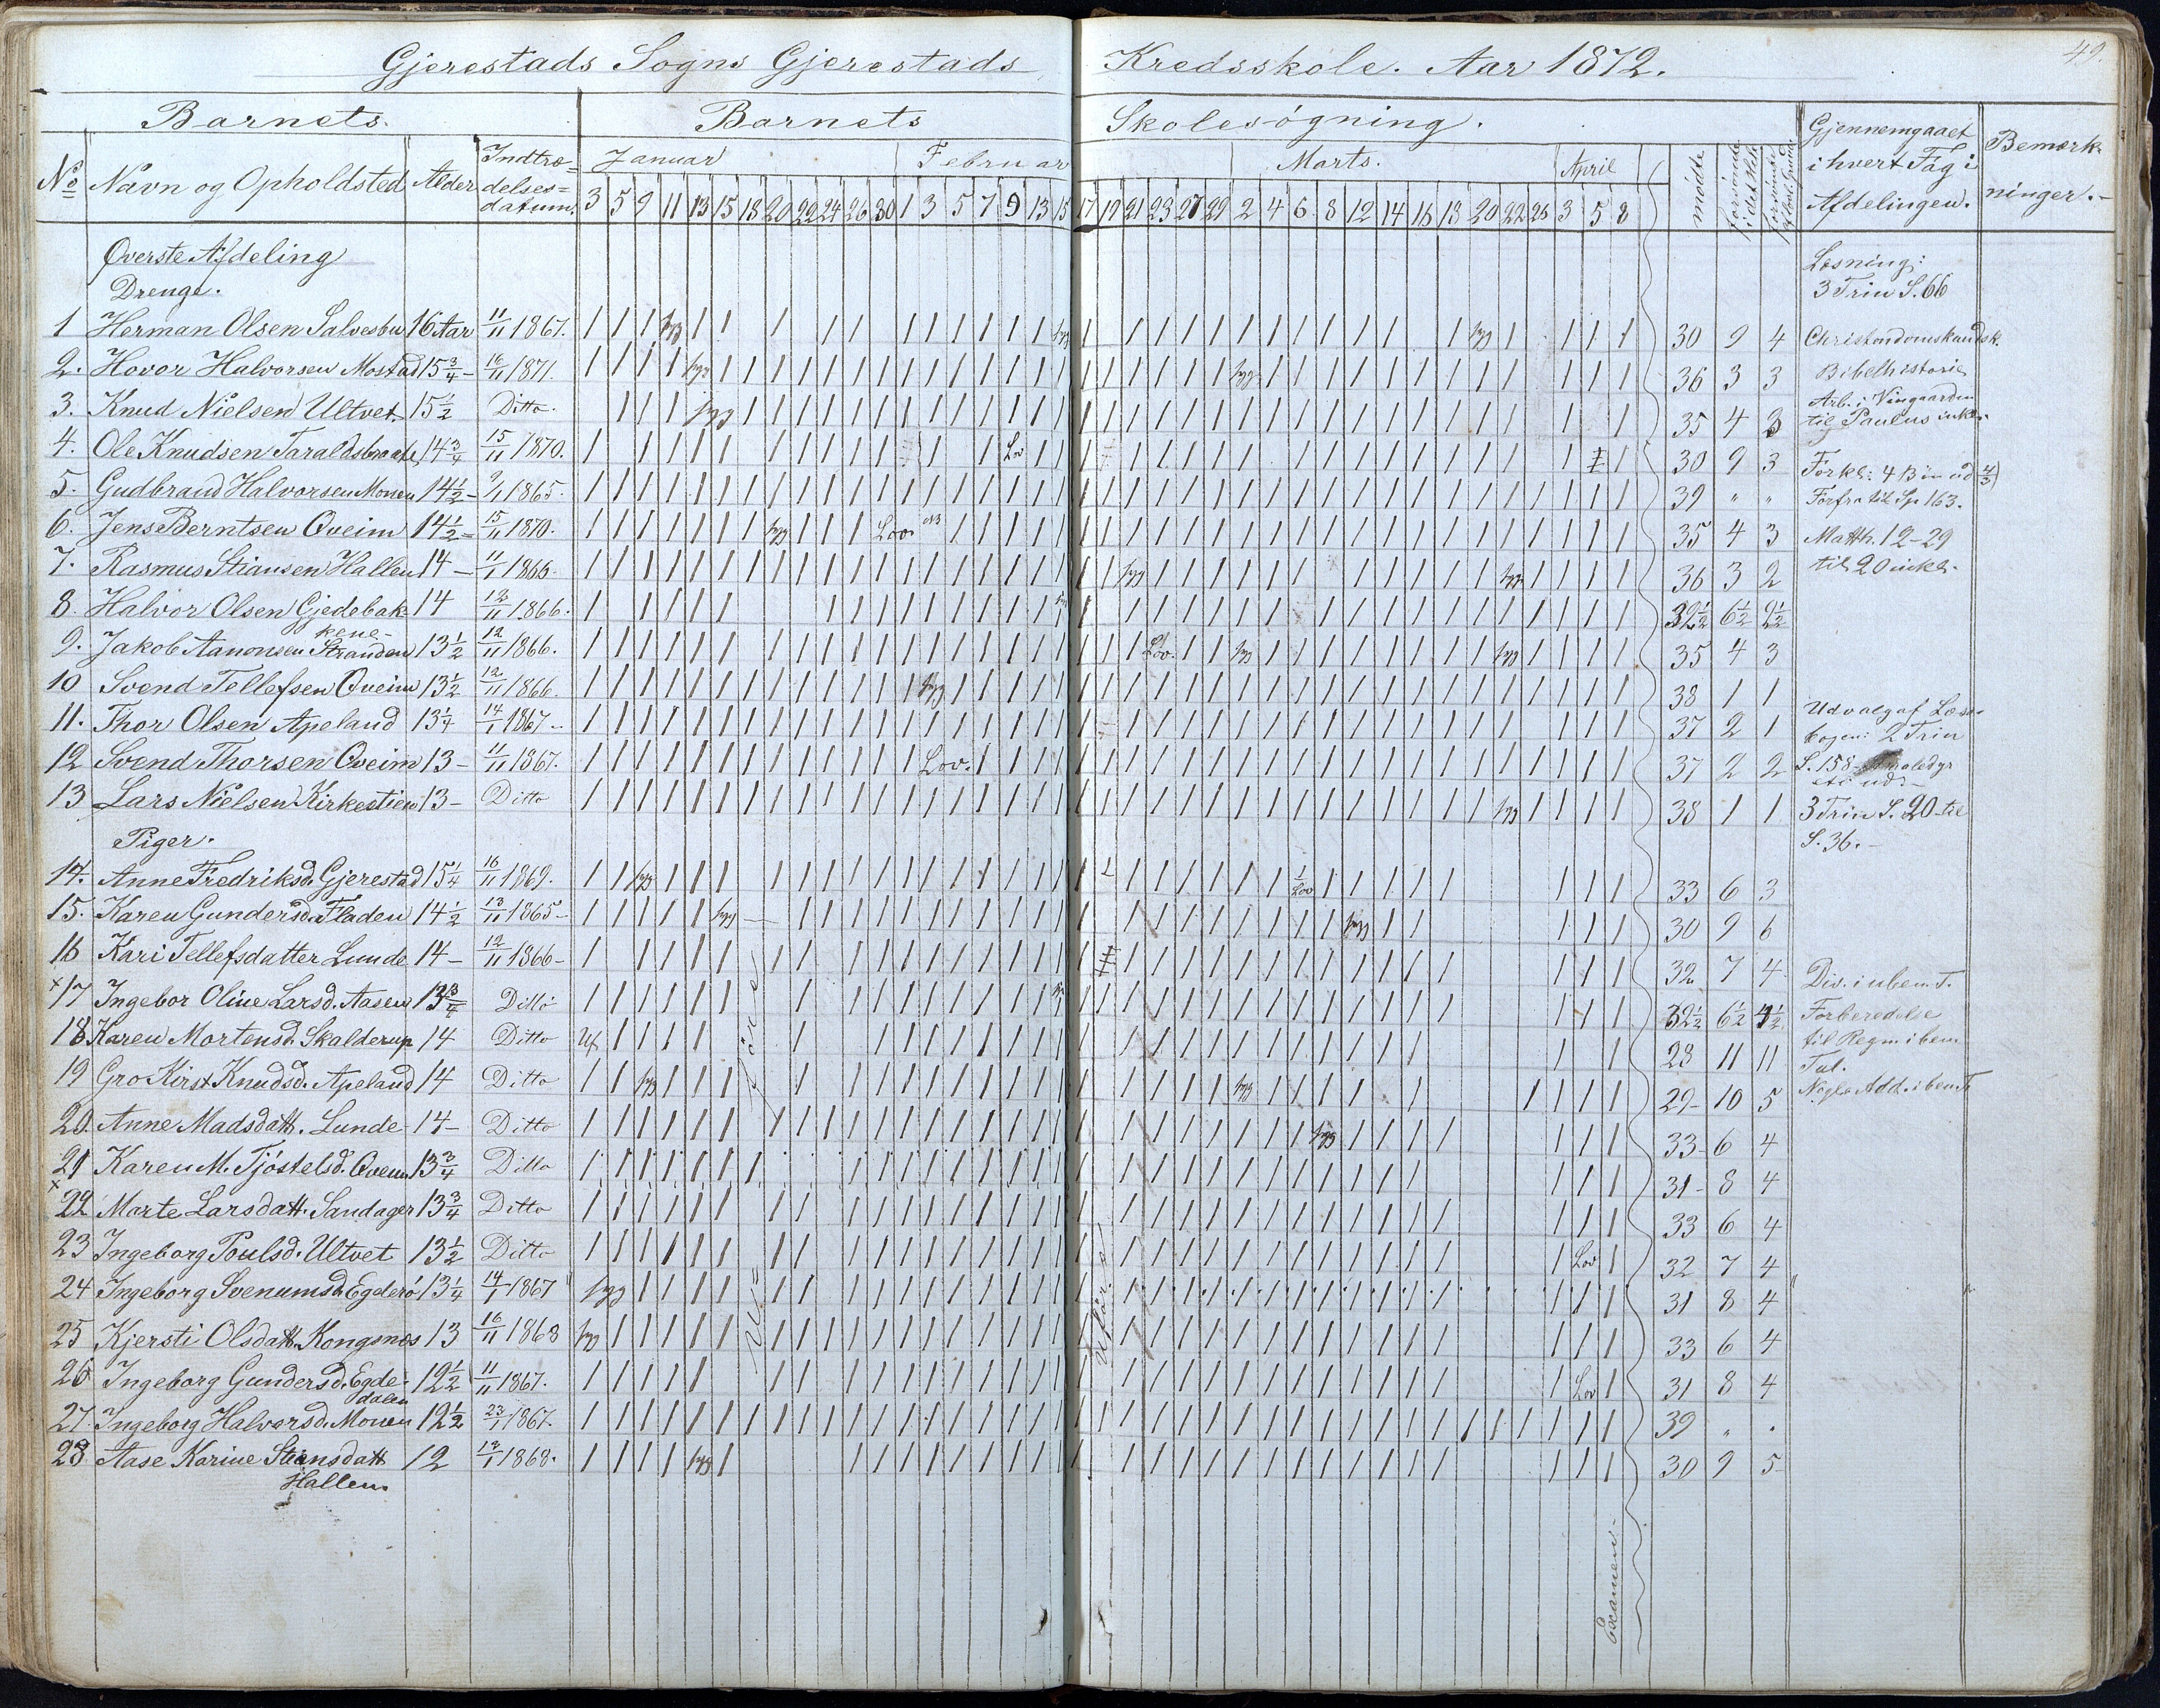 Gjerestads Sogns Gjerestads Kredsskole. Aar 1872.
49.
Barnets. Barnets Skolesøgning.
No Navn og Opholdsted Alder Indtræ=
delses=
datum.
Januar Februar Marts. April
3 5 9 11 13 15 18 20 22 24 26 30 1 3 5 7 9 13 15 17 19 21 23 27 29 2 4 6 8 12 14 16 18 20 22 26 3 5 8
mødte forsømte i det Hele
Gjennemgaaet
i hvert Fag i
Afdelingen.
Bemærk-
ninger.
Øverste Afdeling
Drenge.
1 Herman Olsen Salvesbu 16 Aar 11/11 1867. 30 9 4
2. Hovor Halvorsen Mostad 15 3/4 - 16/11 1871. 36 3 3
3. Knud Nielsen Ultvet. 15 1/2 Ditto. 35 4 3
4. Ole Knudsen Taraldsbraate 14 3/4 15/11 1870. Lov 30 9 3
5. Gudbrand Halvorsen Monen 14 1/2 - 9/1 1865. 39 " "
6. Jens Berntsen Qveim 14 1/2 = 15/11 1870. Lov. 35 4 3
7. Rasmus Stiansen Hallen 14 - 11/1 1866. 36 3 2
8. Halvor Olsen Gjedebak- 14 12/11 1866. 32 1/2 6 1/2 2 1/2
kene-
9. Jakob Aanonsen Stranden 13 1/2 12/11 1866. Lov. 35 4 3
10 Svend Tellefsen Qveim 13 1/2 12/11 1866. 38 1 1
11. Thor Olsen Apeland 13 1/4 14/1 1867 - 37 2 1
12 Svend Thorsen Qveim 13 - 11/11 1867. Lov. 37 2 2
13 Lars Nielsen Kirkestien 13 - Ditto 38 1 1
Piger.
14. Anne Fredriksd. Gjerestad 15 1/4 16/11 1869. Lov 33 6 3
15. Karen Gundersd. Fladen 14 1/2 13/11 1865 - 30 9 6
16 Kari Tellefsdatter Lunde 14 - 12/11 1866 - 32 7 4
x 17 Ingebor Oline Larsd. Aasen 13 3/4 Ditto 32 1/2 6 1/2 4 1/2
18 Karen Mortensd. Skalderup 14 Ditto 28 11 11
19 Gro Kirst. Knudsd. Apeland 14 Ditto 29 - 10 5
20. Anne Madsdatt. Lunde 14 - Ditto 33 - 6 4
21 Karen M. Tjøstelsd. Qveim 13 3/4 Ditto 31 - 8 4
x 22 Marte Larsdatt. Sandager 13 3/4 Ditto 33 6 4
23 Ingeborg Poulsd. Ultvet 13 1/2 Ditto Lov 32 7 4
24 Ingeborg Svenumsd. Egderø 13 1/4 14/1 1867 31 8 4
25 Kjersti Olsdatt. Kongsnæs 13 16/11 1868 33 6 4
26 Ingeborg Gundersd. Egde- 12 1/2 11/11 1867. Lov 31 8 4
dalen
27. Ingeborg Halvorsd. Monen 12 1/2 23/1 1867. 39 " .
28 Aase Karine Stiansdatt 12 13/1 1868. 30 9 5
Hallen
Uføre
Uføre
Examen
Læsning:
3 Trin S. 66
Christendomskundsk.
Bibelhistorie
Arb. i Vingaarden
til Paulus inkl.
Forkl: 4 Bøn ud
Forfra til Sp 163.
Matth. 12-29
til 20 inkl.
Udvalg af Læse-
bogen: 2 Trin
S. 158
3 Trin S. 20 til
S. 36. -
Div. i uben. T.
Forberedelse
til Regn i ben.
Tal.
Nogle Add. i ben. T